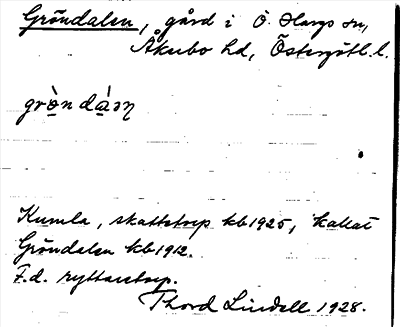 Gröndalen, gård i Ö. Hargs sn,
Åkerbo hd, Östergötl. l.
grö̀n dáɷn
Kumla, skattetorp kb 1925, kallat
Gröndalen kb 1912.
F.d. ryttaretorp.
Thord Lindell 1928.